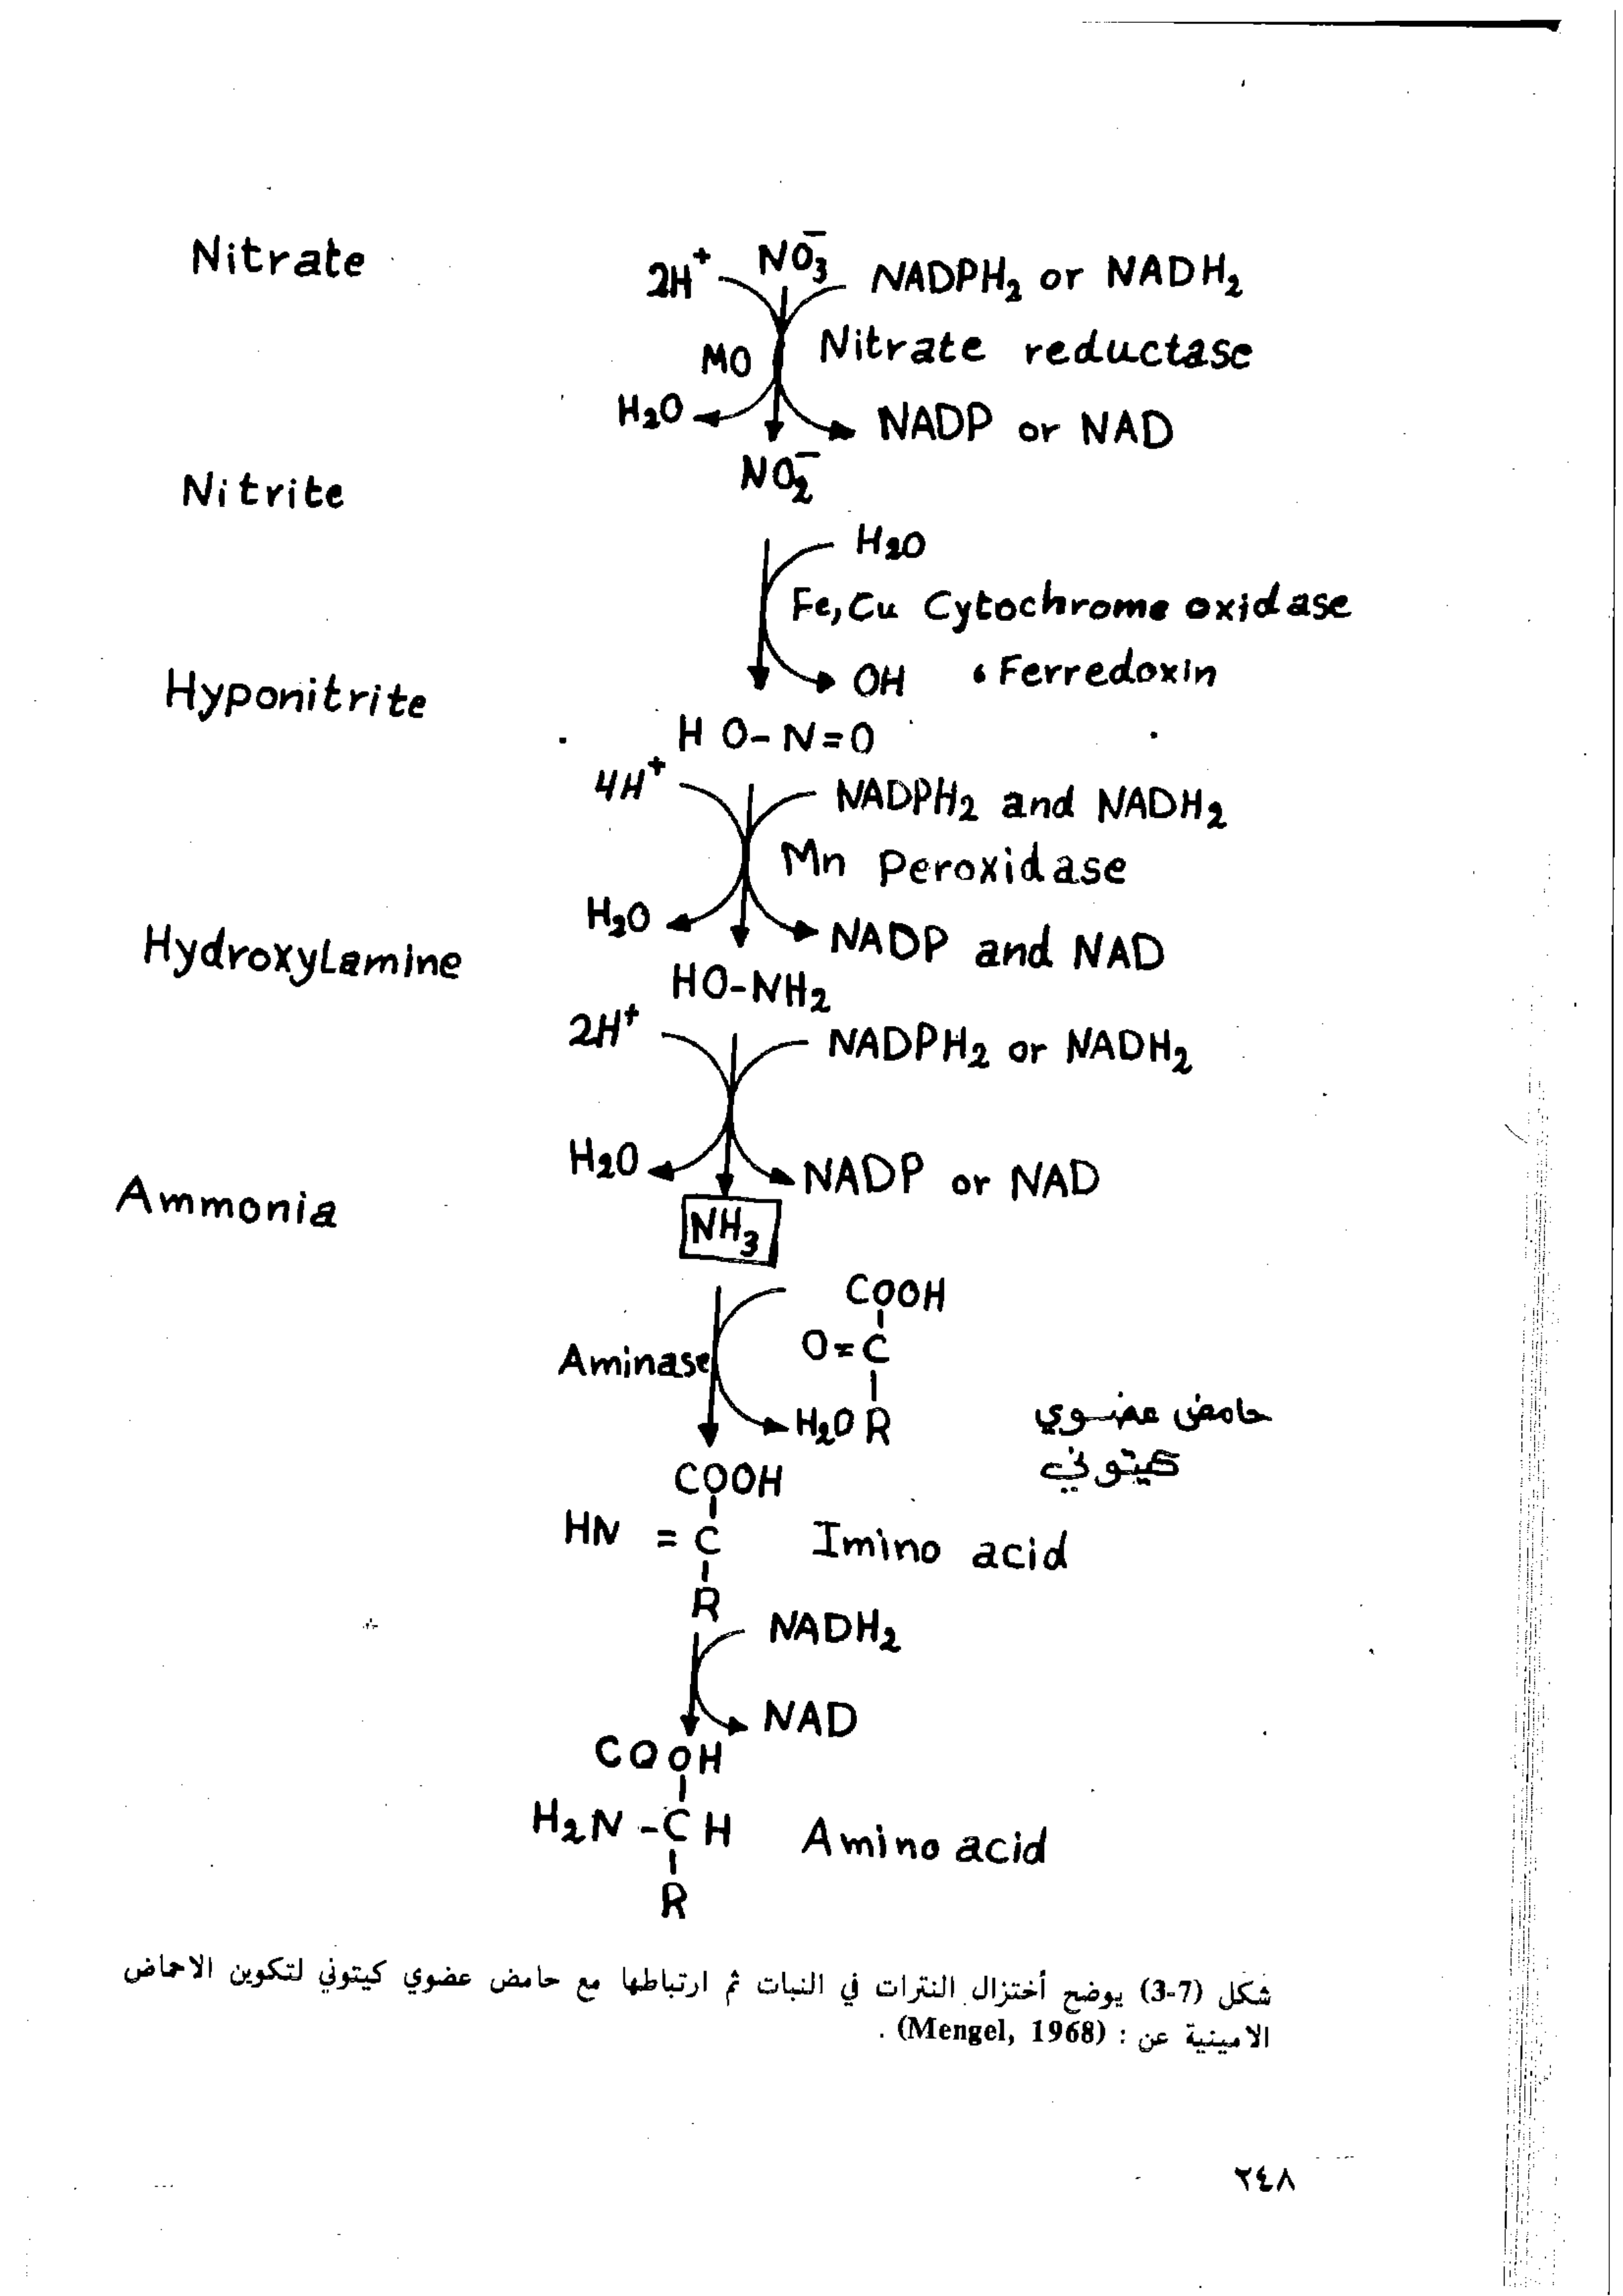 Nitrate
2H⁺ NO₃⁻ NADPH₂ or NADH₂
MO Nitrate reductase
H₂O NADP or NAD
Nitrite NO₂⁻
H₂O
Fe, Cu Cytochrome oxidase
OH ، Ferredoxin
Hyponitrite
H O-N=O
4H⁺ NADPH₂ and NADH₂
Mn Peroxidase
H₂O NADP and NAD
Hydroxylamine
HO-NH₂
2H⁺ NADPH₂ or NADH₂
H₂O NADP or NAD
Ammonia
NH₃
COOH
Aminase O=C
H₂O R حامض عضوي
كيتوني
COOH
HN = C Imino acid
R
NADH₂
NAD
COOH
H₂N -C H Amino acid
R
شكل (7-3) يوضح أختزال النترات في النبات ثم ارتباطها مع حامض عضوي كيتوني لتكوين الاحماض
الامينية عن : (Mengel, 1968) .
٢٤٨